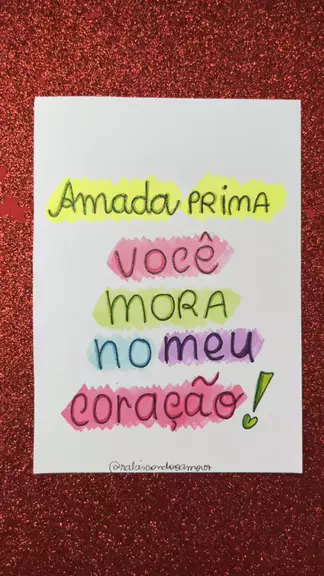 Amada PRIMA
VOCÊ
MORA
no meu
coração!
@rabiscandooamor